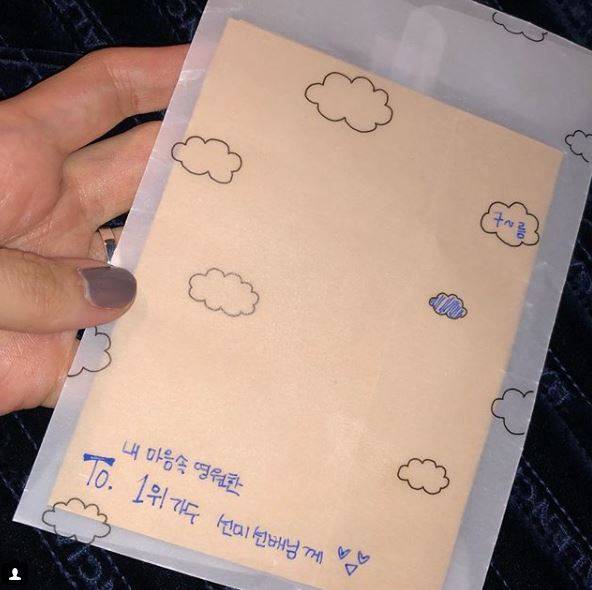 구~름
내 마음속 영원한
To. 1위 가수 선미 선배님께